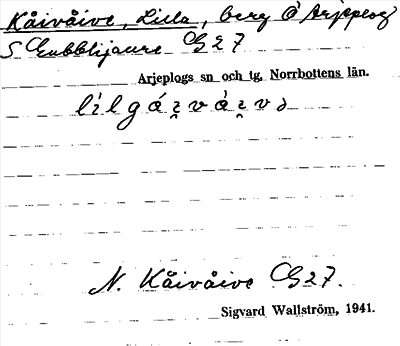 Kåivåive, Lilla, berg Ö Arjeplog
S Gubblijaure G27
Arjeplogs sn och tg, Norrbottens län.
N. Kåivåive G27.
Sigvard Wallström, 1941.